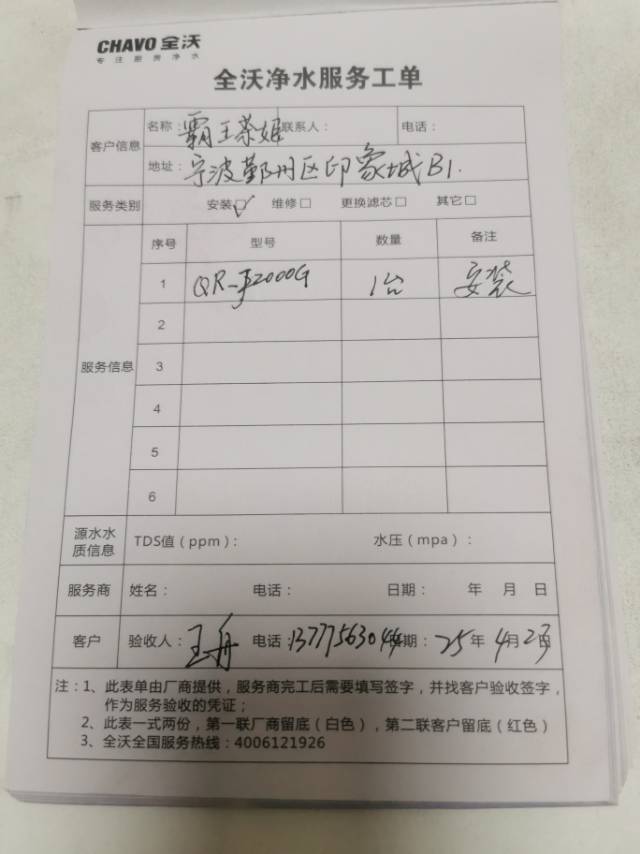 CHAVO 全沃
专注厨房净水
全沃净水服务工单
客户信息 名称：霸王茶姬 联系人： 电话：
地址：宁波鄞州区印象城B1.
服务类别 安装☑ 维修□ 更换滤芯□ 其它□
服务信息 序号 型号 数量 备注
1 1台 安装
2
3
4
5
6
源水水质信息 TDS值（ppm）： 水压（mpa）：
服务商 姓名： 电话： 日期： 年 月 日
客户 验收人：王舟 电话：日期：25年4月2日
注：1、此表单由厂商提供，服务商完工后需要填写签字，并找客户验收签字，
作为服务验收的凭证；
2、此表一式两份，第一联厂商留底（白色），第二联客户留底（红色）
3、全沃全国服务热线：4006121926